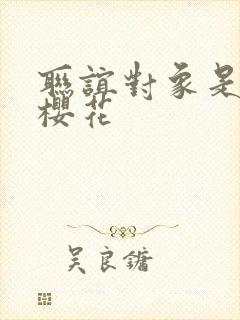 聯誼對象是
櫻花
吴良鏞